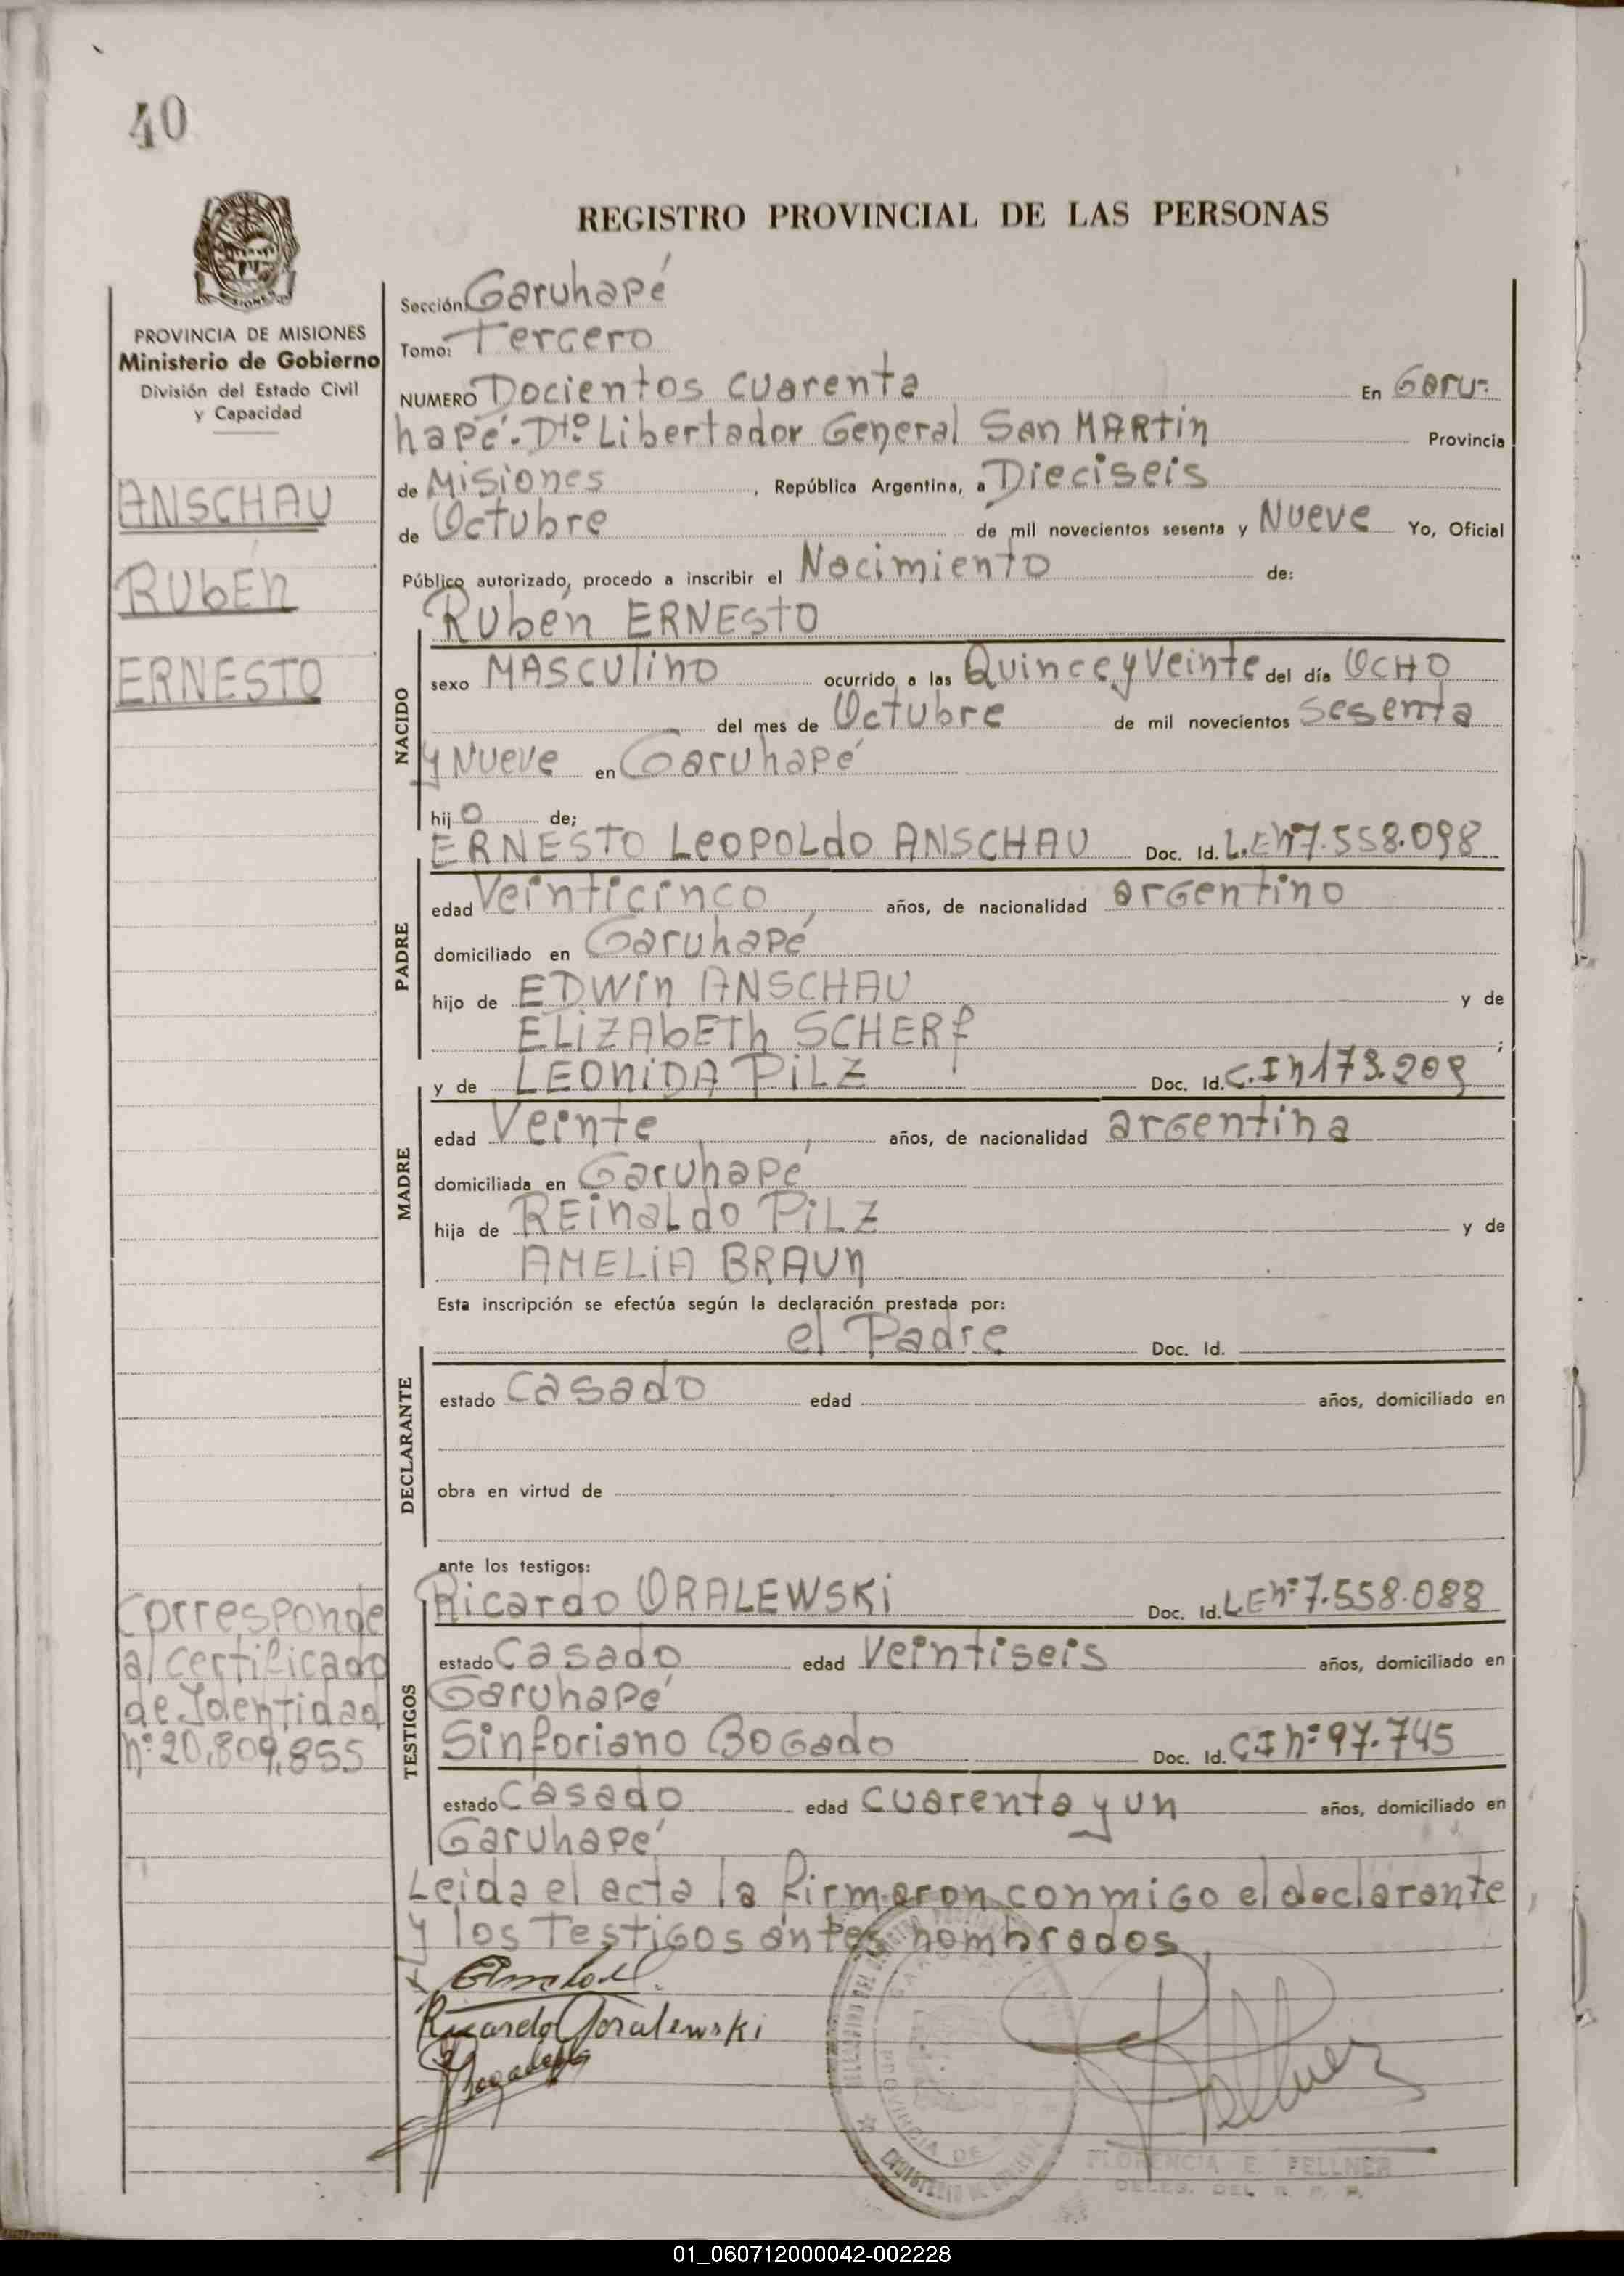 40
REGISTRO PROVINCIAL DE LAS PERSONAS
MISIONES
PROVINCIA DE MISIONES
Ministerio de Gobierno
División del Estado Civil
y Capacidad
ANSCHAU
RUbÉn
ERNESTO
Corresponde
al certificado
de Identidad
nº 20,809,855
Sección: Garuhapé
Tomo: Tercero
NUMERO Docientos cuarenta En Garu-
hapé.- Dtº Libertador General San MARTin Provincia
de Misiones, República Argentina, a Dieciseis
de Octubre de mil novecientos sesenta y Nueve Yo, Oficial
Público autorizado, procedo a inscribir el Nacimiento de:
Rubén ERNESTO
NACIDO
sexo MASCUlino ocurrido a las Quince y Veinte del día OCHO
del mes de Octubre de mil novecientos Sesenta
y Nueve en Garuhapé
hijo de;
ERNESTO LEOPOLdO ANSCHAU Doc. Id. L.E n 7.558.098
PADRE
edad Veinticinco años, de nacionalidad argentino
domiciliado en Garuhapé
hijo de EDWin ANSCHAU y de
ELiZAbETh SCHERf;
y de LEONiDA PiLZ Doc. Id. C.I n 173.209
MADRE
edad Veinte años, de nacionalidad argentina
domiciliada en Garuhapé
hija de REinaLdo PiLZ y de
AMELiA BRAUn
Esta inscripción se efectúa según la declaración prestada por:
el Padre Doc. Id.
DECLARANTE
estado casado edad años, domiciliado en
obra en virtud de
ante los testigos:
Ricardo ORALEWSKi Doc. Id. LE nº 7.558.088
TESTIGOS
estado Casado edad Veintiseis años, domiciliado en
Garuhapé
Sinforiano BOGado Doc. Id. CI nº 97.745
estado Casado edad cuarenta y un años, domiciliado en
Garuhapé
Leida el acta la firmaron conmigo el declarante
y los testigos antes nombrados
Ricardo Goralewski
PROVINCIA DE
FLORENCIA E. FELLNER
DELEG. DEL R. P. P.
01_060712000042-002228